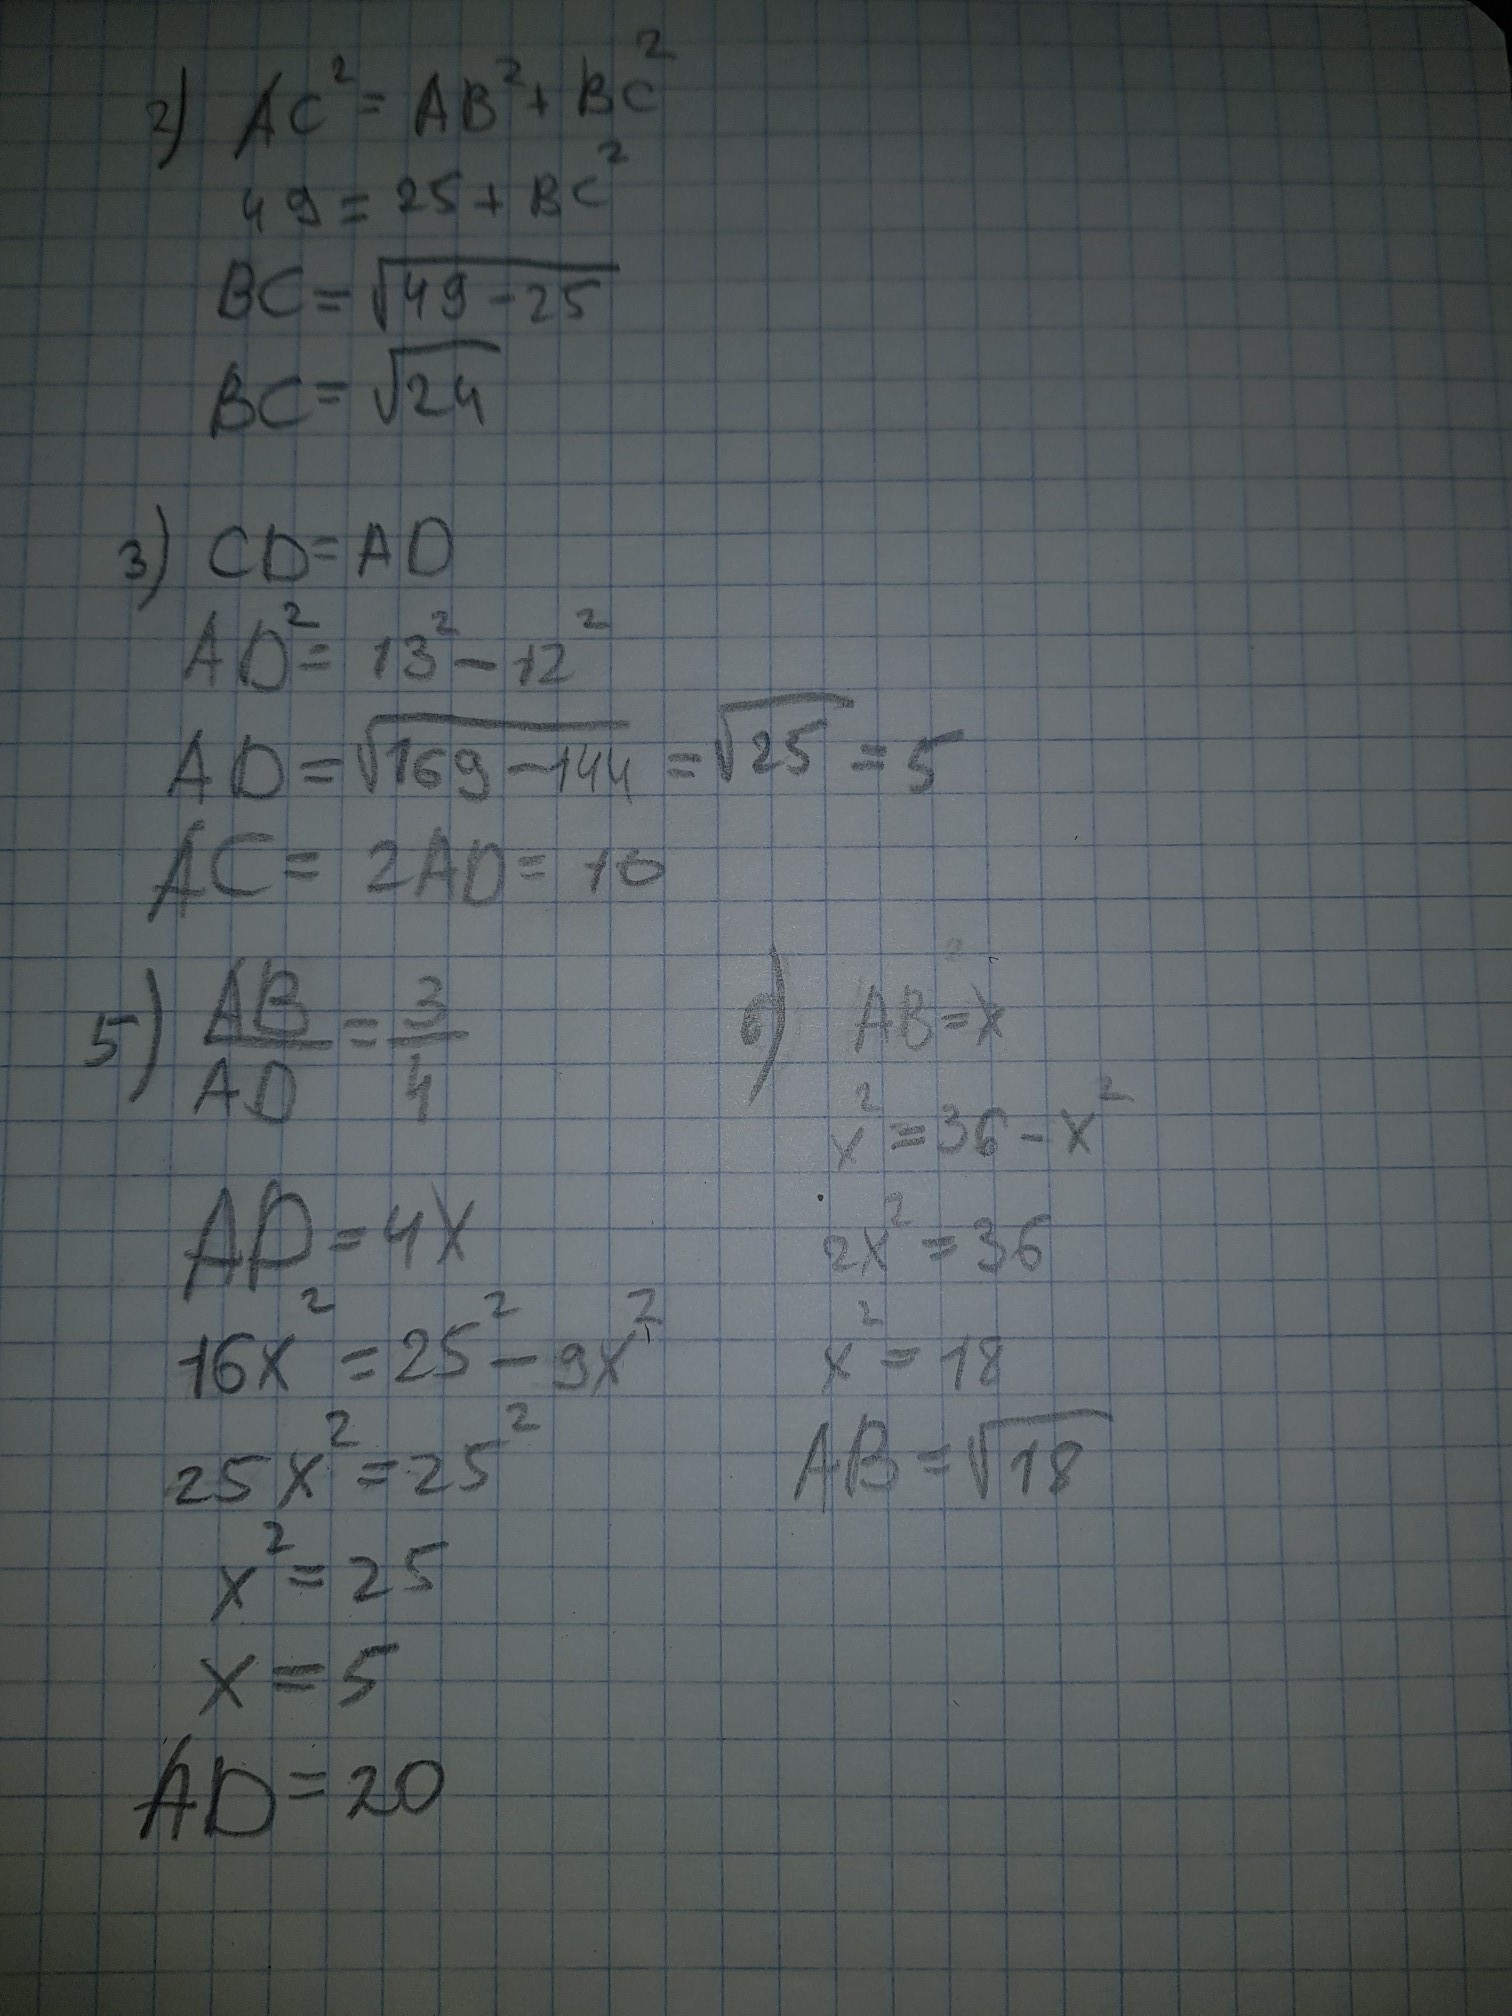 2) AC² = AB² + BC²
49 = 25 + BC²
BC = √49 - 25
BC = √24
3) CD = AD
AD² = 13² - 12²
AD = √169 - 144 = √25 = 5
AC = 2AD = 10
5) AB/AD = 3/4
AD = 4x
16x² = 25² - 9x²
25x² = 25²
x² = 25
x = 5
AD = 20
6) AB = x
x² = 36 - x²
2x² = 36
x² = 18
AB = √18